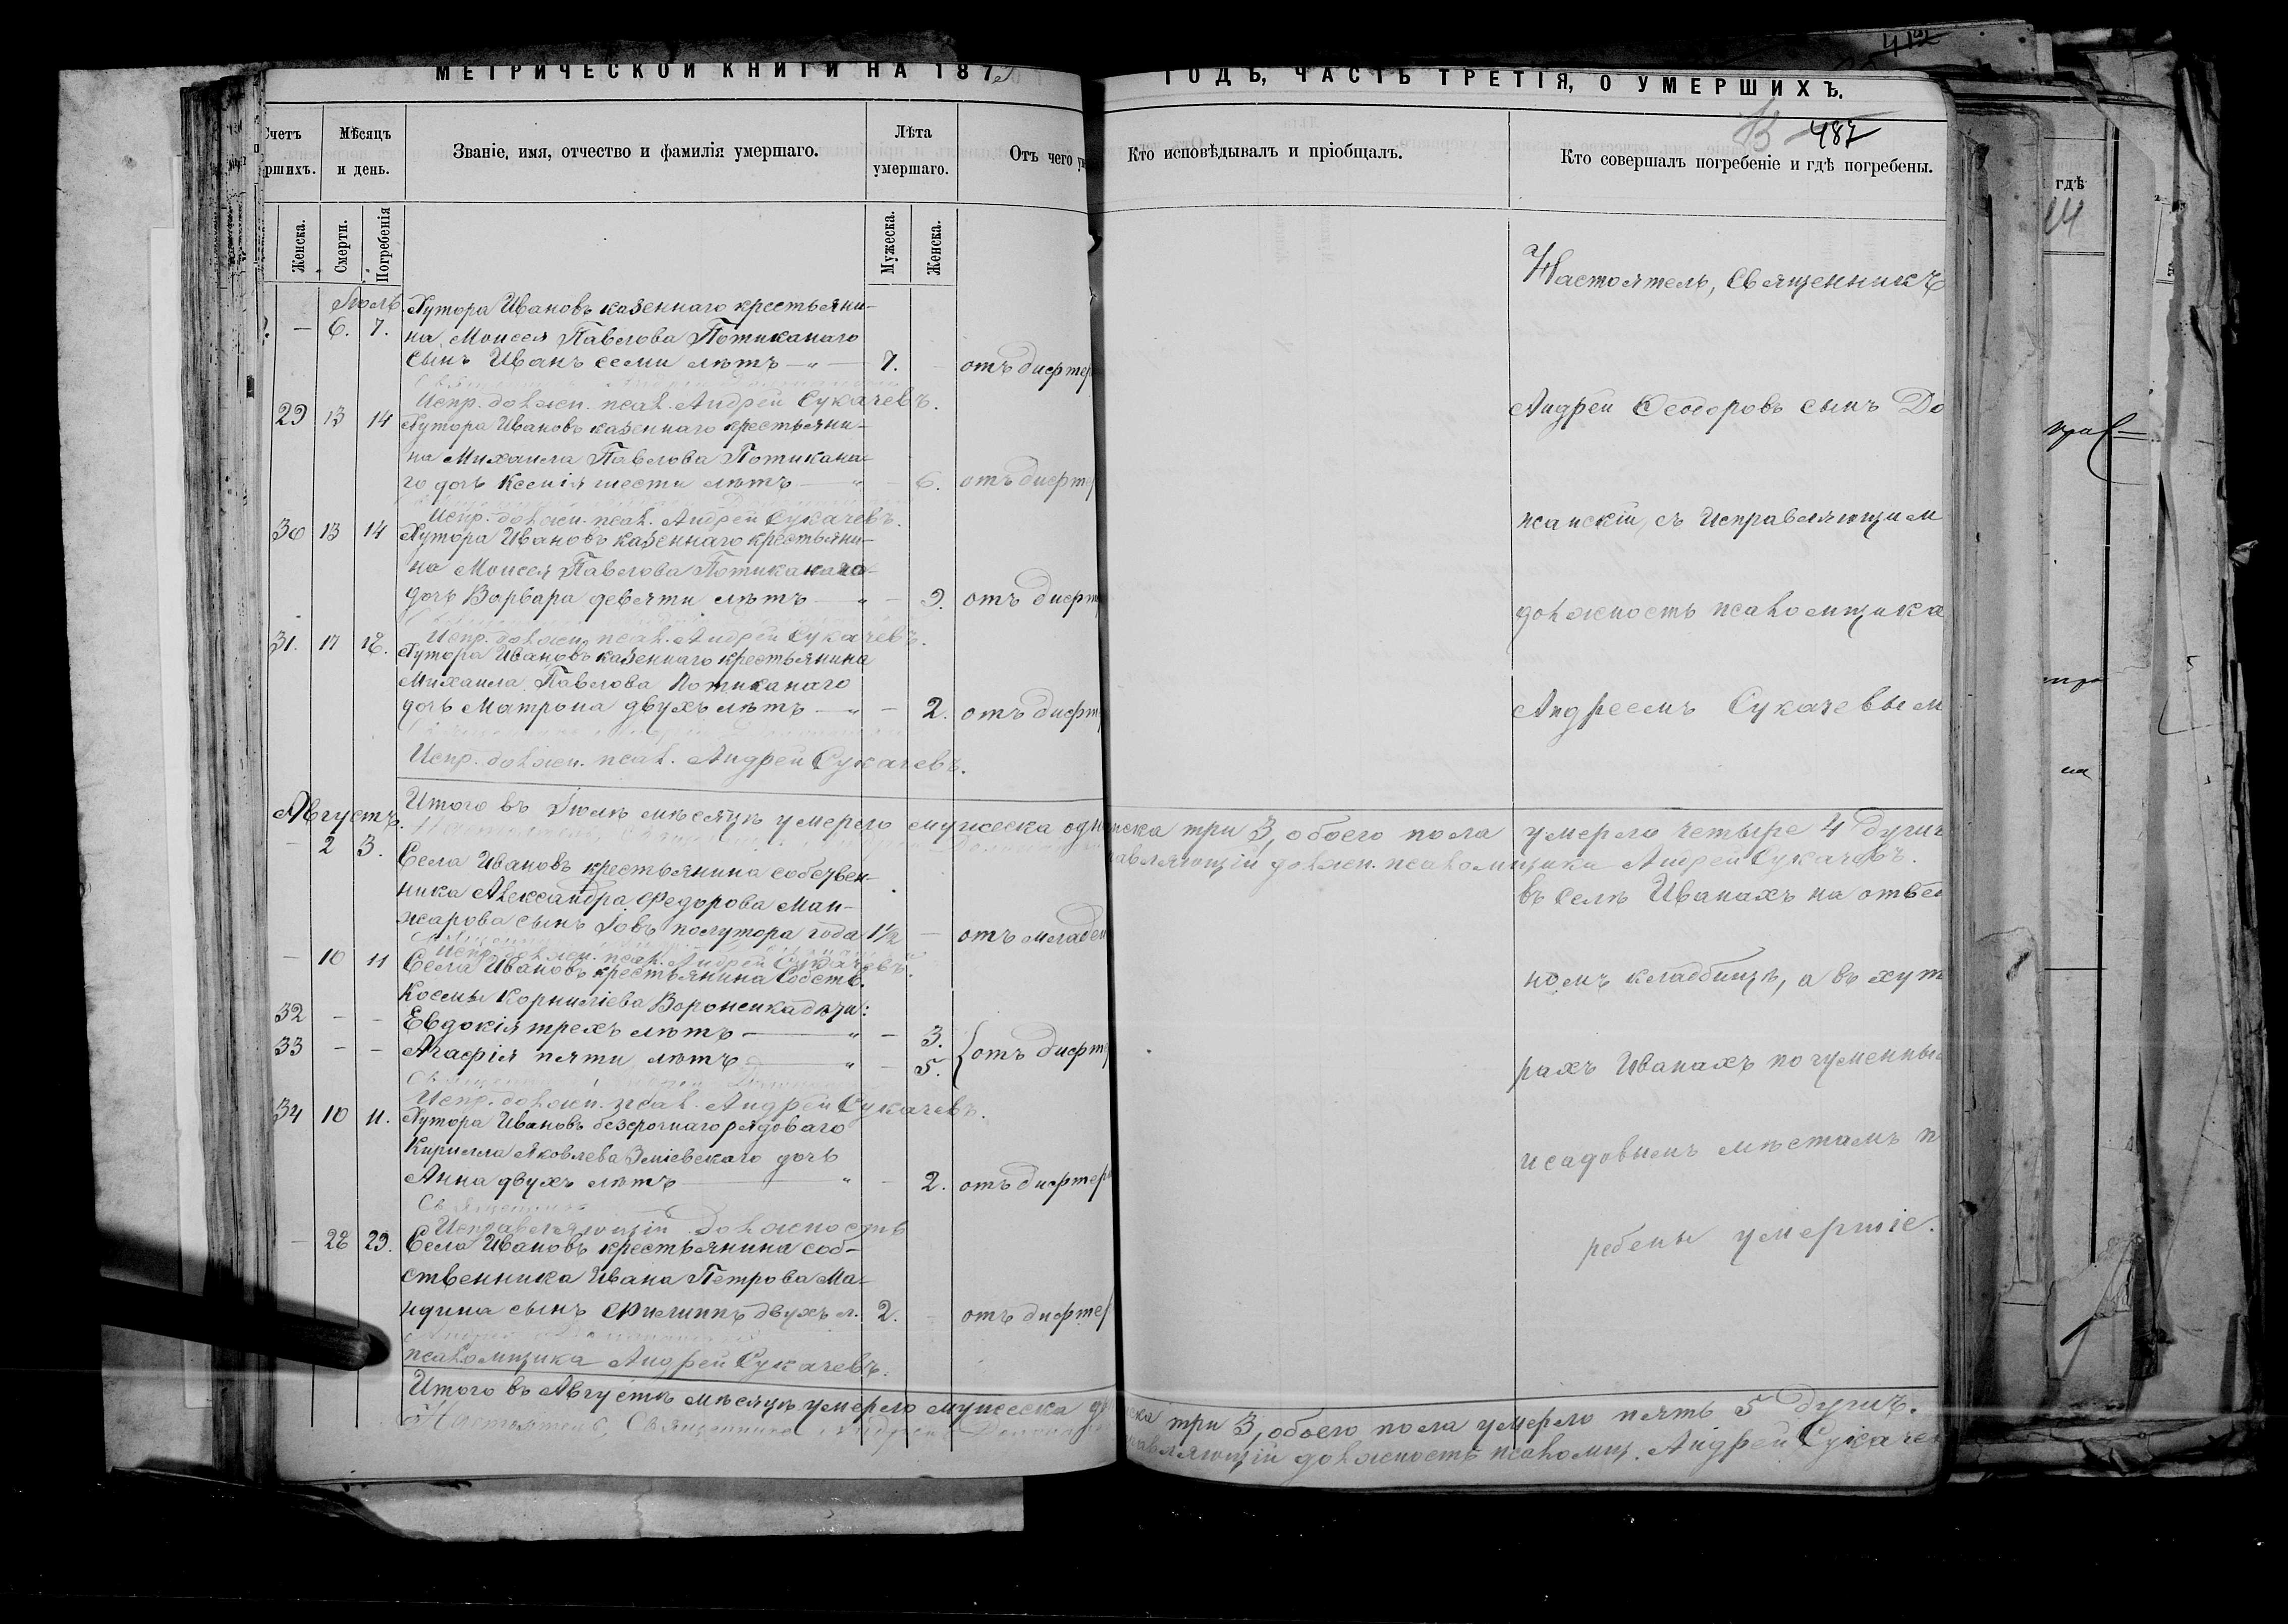 МЕТРИЧЕСКОЙ КНИГИ НА 187
Счетъ
рших.
Мѣсяцъ
и день.
Званіе, имя, отчество и фамилія умершаго.
Лѣта
умершаго.
Отъ чего
Женска.
Смерти.
Погребенія
Мужеска.
Женска.
Іюль.
— 6. 7. Хутора Ивановъ казеннаго крестьяни-
на Моисея Павлова Потиканаго
сынъ Иванъ семи лѣтъ — " — 7. отъ дифтер
Испр. должн. псал. Андрей Сукачевъ.
29 13 14 Хутора Ивановъ казеннаго крестьяни-
на Михаила Павлова Потикана-
го дочь Ксенія шести лѣтъ — " — 6. отъ дифте
Испр. должн. псал. Андрей Сукачевъ.
30 13 14 Хутора Ивановъ казеннаго крестьяни-
на Моисея Павлова Потиканаго
дочь Варвара девяти лѣтъ — " — 9. отъ дифт
Испр. должн. псал. Андрей Сукачевъ.
31. 17 18. Хутора Ивановъ казеннаго крестьянина
Михаила Павлова Потиканаго
дочь Матрона двухъ лѣтъ — " — 2. отъ дифт
Испр. должн. псал. Андрей Сукачевъ.
Итого въ Іюлѣ мѣсяцѣ умерло мужеска одн
Августъ.
— 2 3. Села Ивановъ крестьянина собствен-
ника Александра Федорова Ман-
жарова сынъ Іовъ полутора года 1½ — отъ младен
Испр. должн. псал. Андрей Сукачевъ.
— 10 11 Села Ивановъ крестьянина Собств.
Космы Корниліева Вороненка дѣти:
32 — — Евдокія трехъ лѣтъ — " — 3.
33 — — Агафія пяти лѣтъ — " — 5. отъ дифт
Священникъ Андрей
Испр. должн. псал. Андрей Сукачевъ.
34 10 11. Хутора Ивановъ безсрочнаго рядоваго
Кирилла Яковлева Зміевскаго дочь
Анна двухъ лѣтъ — " — 2. отъ дифтер
Священникъ
Исправляющій Должность
— 28 29. Села Ивановъ крестьянина соб-
ственника Ивана Петрова Ма-
ндина сынъ Филиппъ двухъ л. 2. отъ дифтер
псаломщика Андрей Сукачевъ.
Итого въ Августѣ мѣсяцѣ умерло мужеска дв
Настоятель, Священникъ Андрей
ГОДЪ, ЧАСТЬ ТРЕТІЯ, О УМЕРШИХЪ.
487
Кто исповѣдывалъ и пріобщалъ.
Кто совершалъ погребеніе и гдѣ погребены.
Настоятель, Священникъ
Андрей Ѳедоровъ сынъ До
жанскій, съ Исправляющим
должность псаломщика
Андреемъ Сукачевым
нска три 3, обоего пола умерло четыре 4 души
авляющій должн. псаломщика Андрей Сукачевъ.
въ селѣ Иванахъ на отве
номъ кладбищѣ, а въ хут
рахъ Иванахъ по гуменны
и садовымъ мѣстамъ п
ребены умершіе.
нска три 3, обоего пола умерло пять 5 душъ.
авляющій должность псаломщ. Андрей Сукаче
412
гдѣ